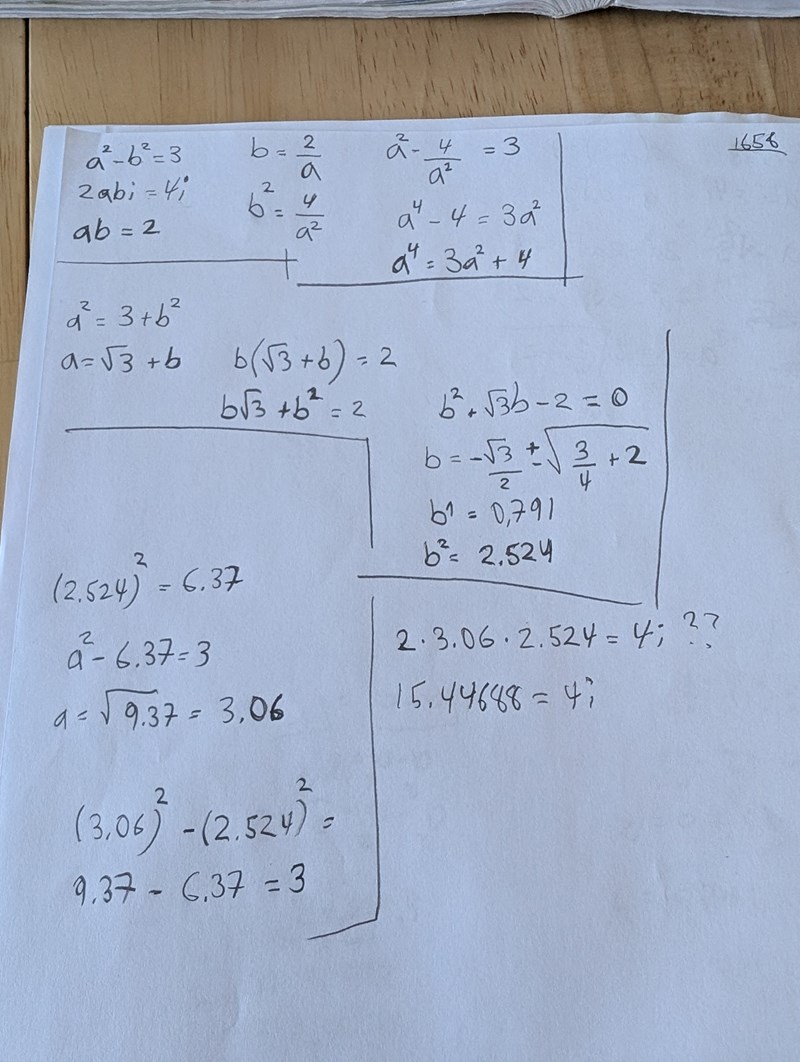 1658
a² - b² = 3
2abi = 4i
ab = 2
b = 2/a
b² = 4/a²
a² - 4/a² = 3
a⁴ - 4 = 3a²
a⁴ = 3a² + 4
a² = 3 + b²
a = √3 + b
b(√3 + b) = 2
b√3 + b² = 2
b² + √3b - 2 = 0
b = -√3/2 ± √(3/4 + 2)
b¹ = 0,791
b² = 2.524
(2.524)² = 6.37
a² - 6.37 = 3
a = √9.37 = 3.06
(3.06)² - (2.524)² =
9.37 - 6.37 = 3
2 · 3.06 · 2.524 = 4i ??
15.44688 = 4i